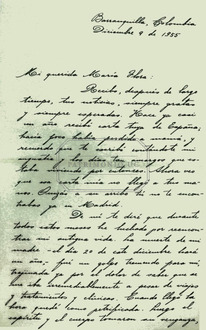 Barranquilla, Colombia
Diciembre 9 de 1955
Mi querida María Elena:
Recibo, después de largo
tiempo, tus noticias, siempre gratas
y siempre esperadas. Hace ya casi
un año recibí carta tuya de España,
hacía poco había perdido a mamá, y
recuerdo que te escribí contándote mi
a los dos tan amigos que es-
taba viviendo por entonces. Ahora veo
que esa carta mía no llegó a tus ma-
nos. Quizás a su arribo tú no te encon-
trabas ya en Madrid.
De mí te diré que durante
todos estos meses he luchado por reencon-
trar mi antigua vida, la muerte de mi
madre el día 20 de este diciembre hará
un año, fue un golpe tremendo para mí,
ya por el dolor de saber que se
nos iba irremediablemente a pesar de viajes
y tratamientos y clínicas. Cuando llegó la
hora quedé como petrificada. Luego el
espíritu y el cuerpo tomaron su venganza,